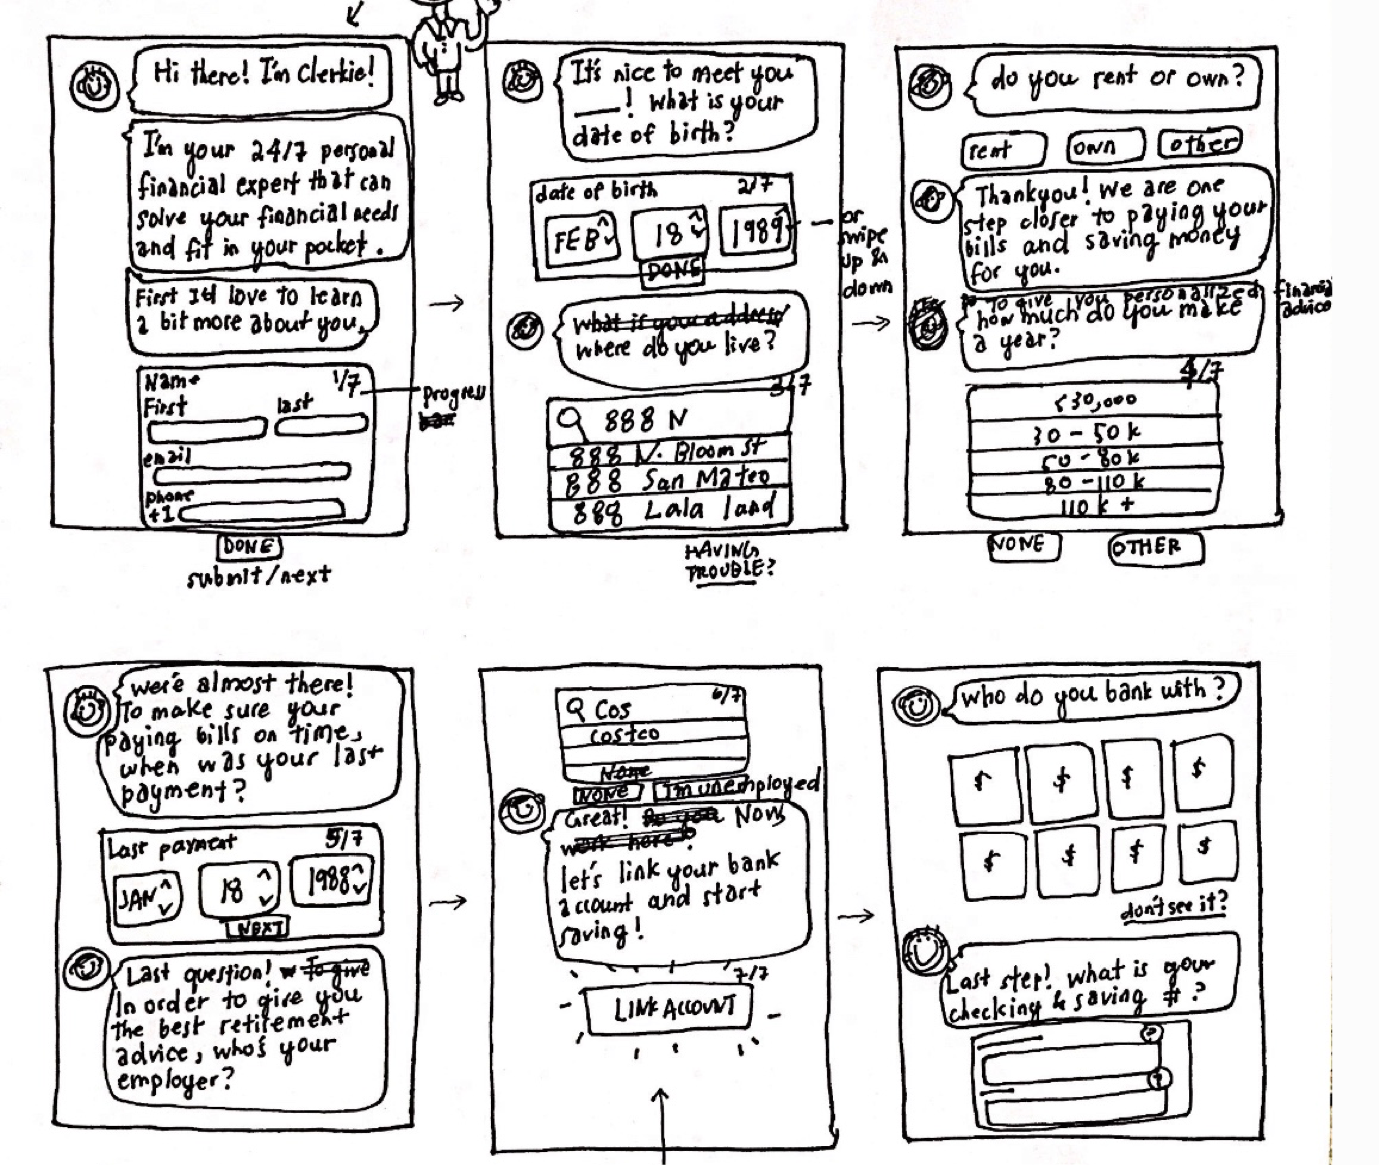 Hi there! I'm Clerkie!
I'm your 24/7 personal
financial expert that can
solve your financial needs
and fit in your pocket.
First I'd love to learn
a bit more about you.
Name 1/7
First last
email
phone
+1
progress
bar
DONE
submit/next
It's nice to meet you
___! What is your
date of birth?
date of birth 2/7
FEB 18 1989
DONE
or
swipe
up &
down
what is your address
where do you live?
3/7
888 N
888 N. Bloom st
888 San Mateo
888 Lala land
HAVING
TROUBLE?
do you rent or own?
rent own other
Thankyou! We are one
step closer to paying your
bills and saving money
for you.
To give you personalized financial
advice
how much do you make
a year?
4/7
<30,000
30 - 50 k
50 - 80k
80 - 110 k
110 k +
NONE OTHER
we're almost there!
To make sure your
paying bills on time,
when was your last
payment?
Last payment 5/7
JAN 18 1988
NEXT
Last question! To give
In order to give you
the best retirement
advice, who's your
employer?
6/7
Cos
costco
None
NONE I'm unemployed
Great! Do you Now
work here?
let's link your bank
account and start
saving!
7/7
LINK ACCOUNT
who do you bank with?
$ $ $ $
$ $ $ $
don't see it?
Last step! what is your
checking & saving #?
?
?